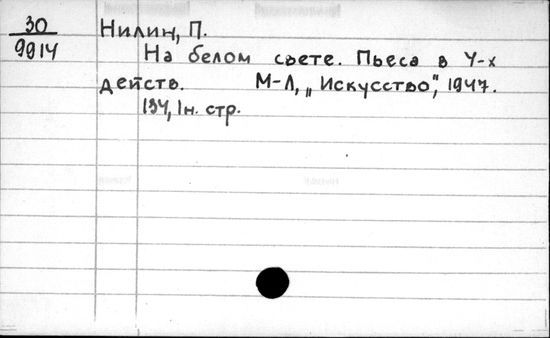 30
9914
Нилин, П.
На белом свете. Пьеса в 4-х
действ. М-Л, „Искусство", 1947.
134, 1н. стр.